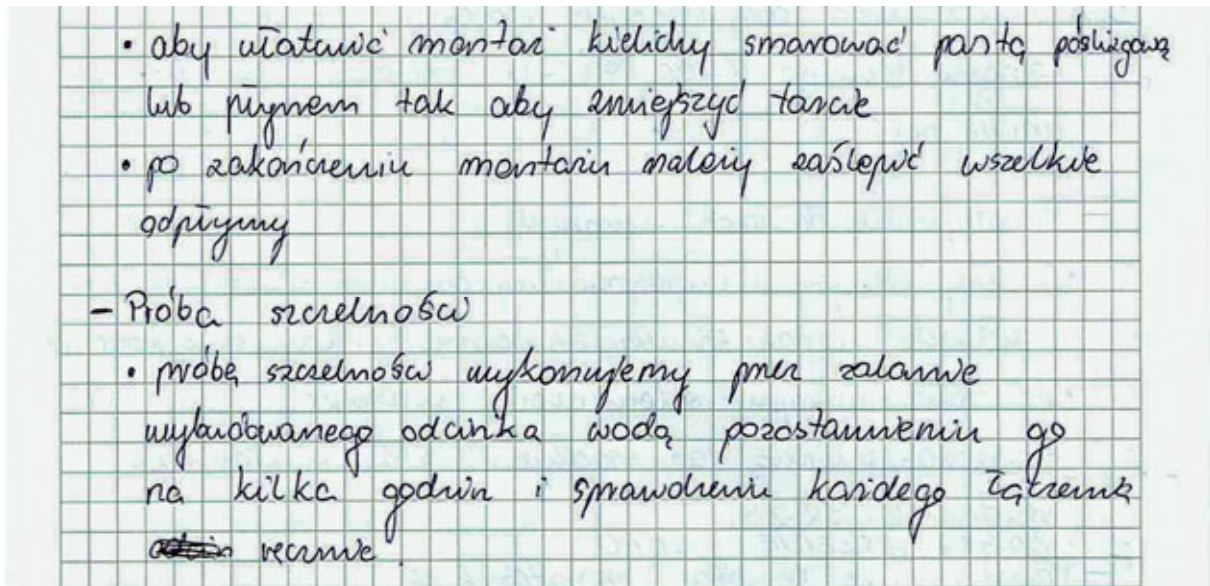 • aby ułatwić montaż kielichy smarować pastą poślizgową
lub płynem tak aby zmiejszyć tarcie
• po zakończeniu montażu należy zaślepić wszelkie
odpływy
- Próba szczelności
• próbę szczelności wykonujemy przez zalanie
wybudowanego odcinka wodą pozostawieniu go
na kilka godzin i sprawdzeniu każdego łączenia
ręcznie.